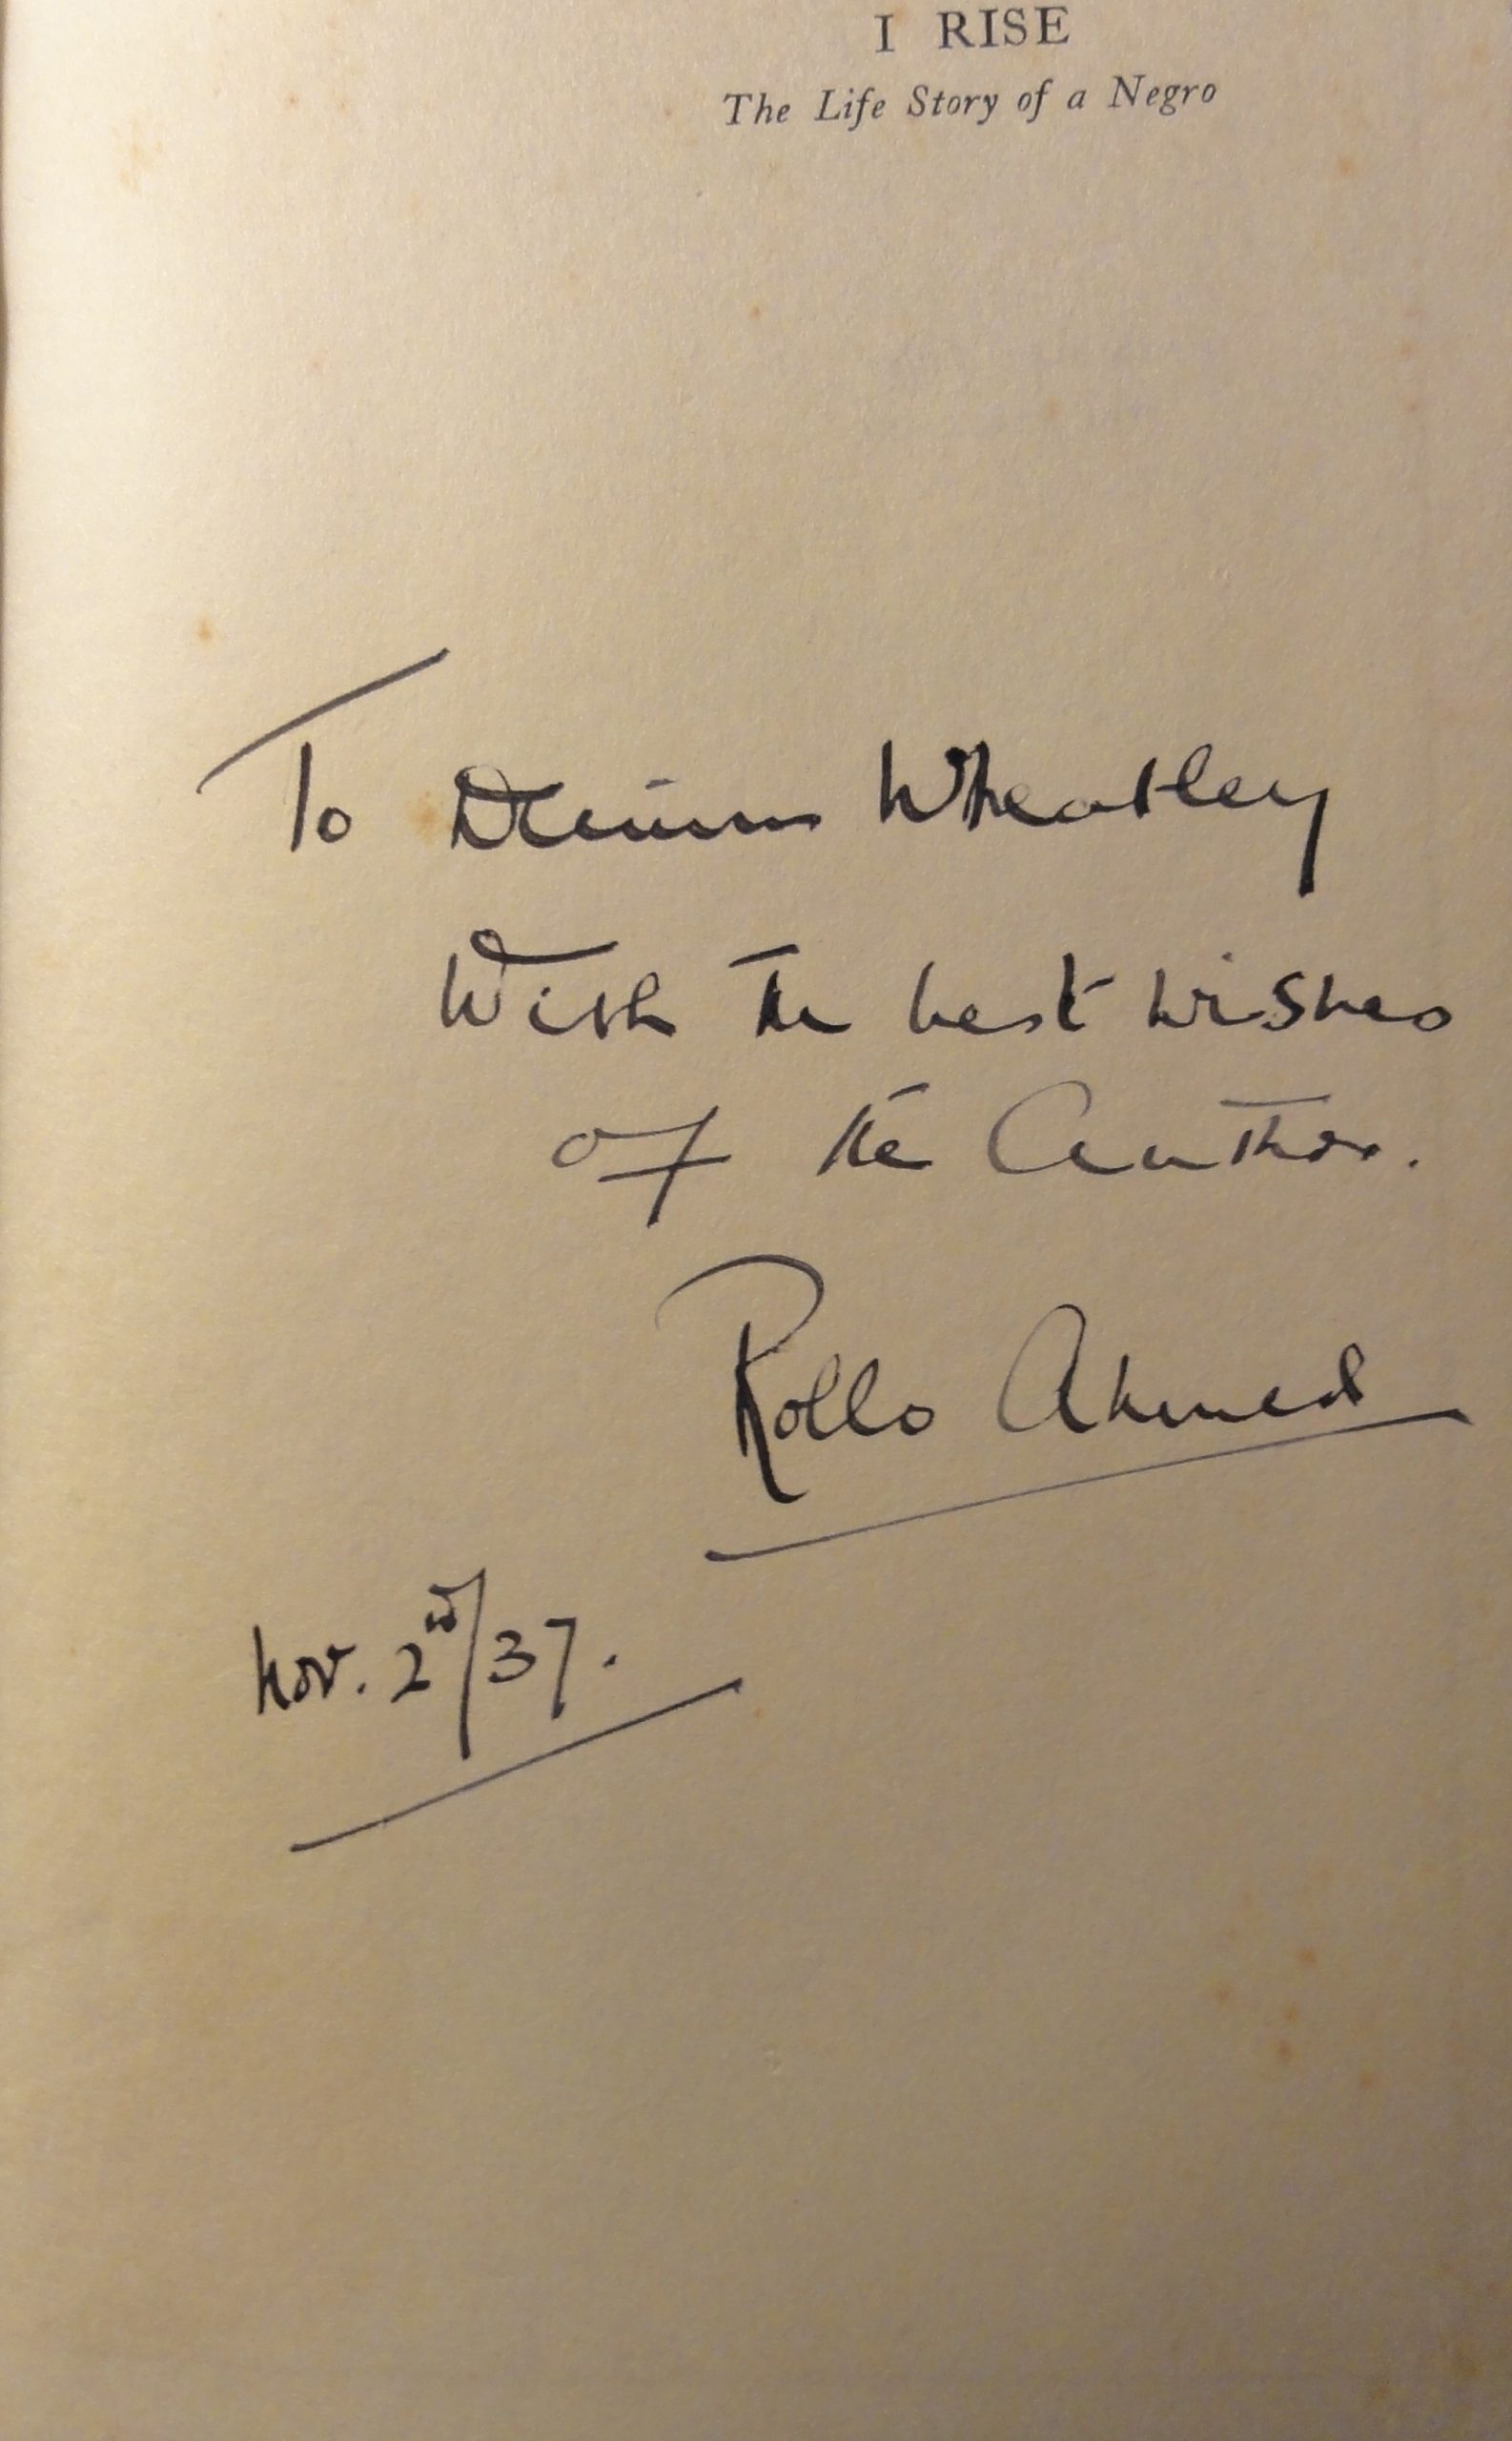 I RISE
The Life Story of a Negro
To Dennis Wheatley
With the best wishes
of the Author.
Rollo Ahmed
Nov. 2nd/37.